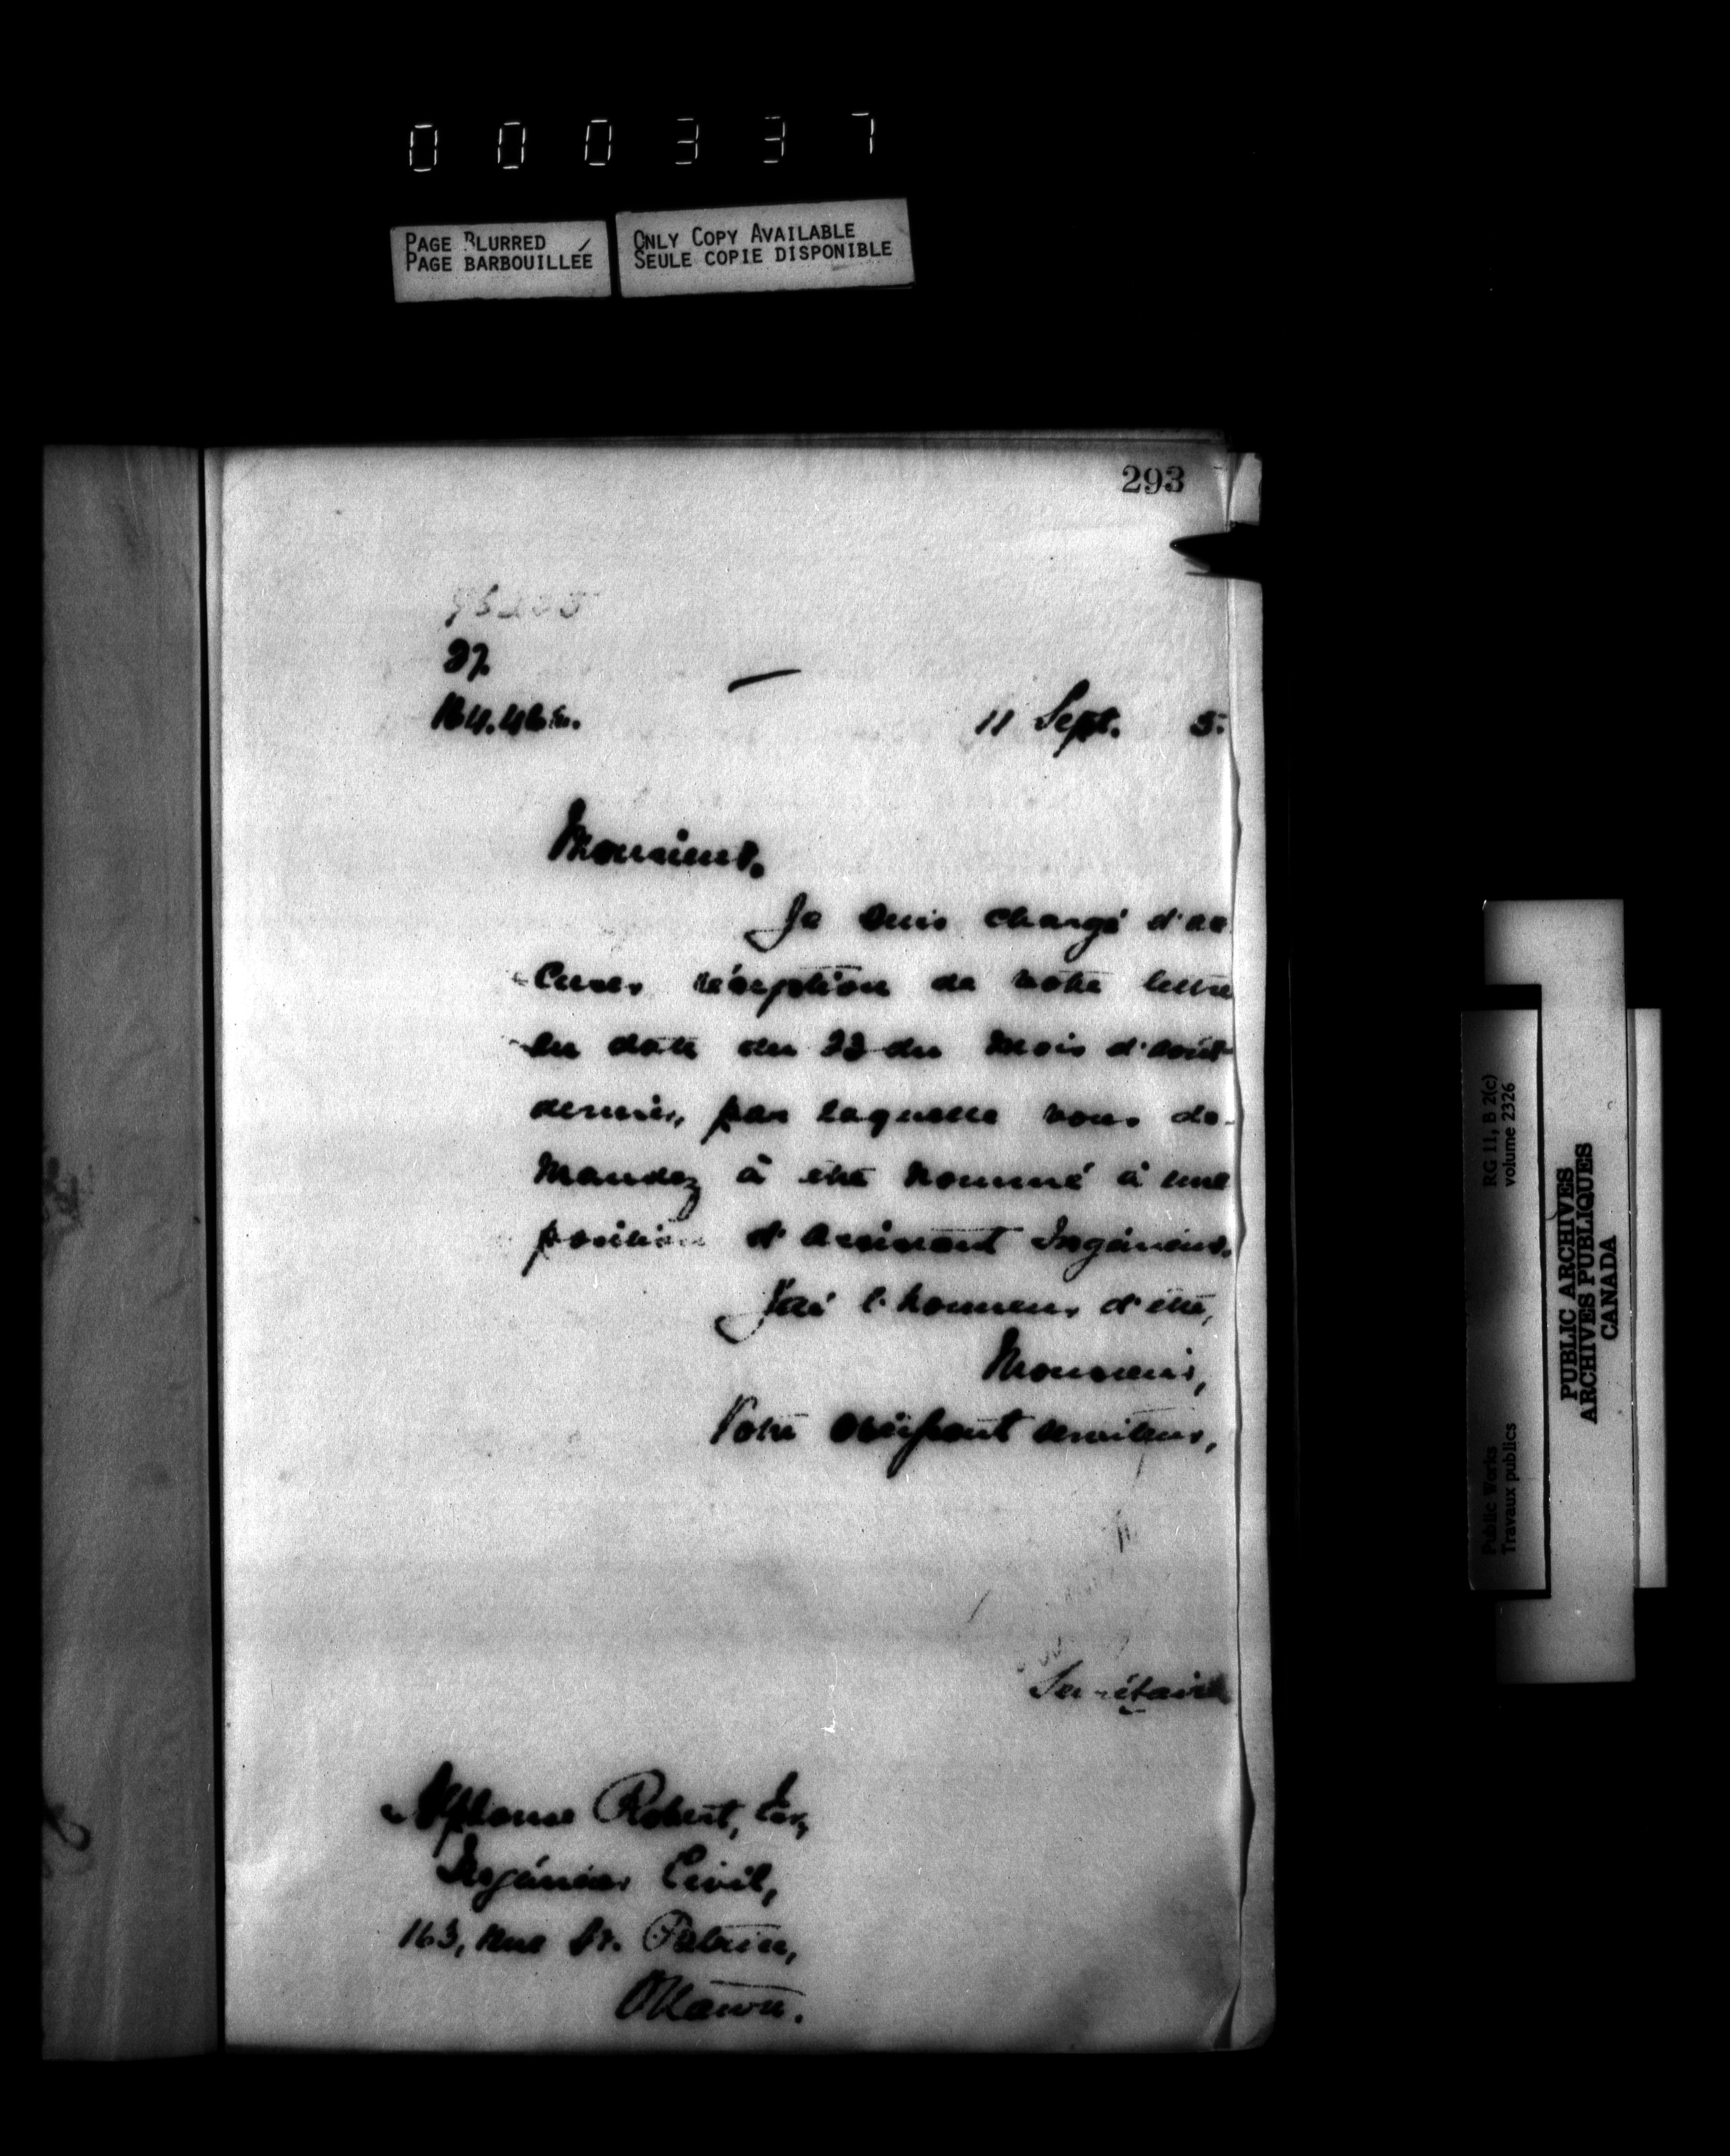 000337
PAGE BLURRED
PAGE BARBOUILLÉE
ONLY COPY AVAILABLE
SEULE COPIE DISPONIBLE
293
27.
11 Sept. 5.
Monsieur,
Je suis chargé d'ac
cuser réception de votre lettre
en date du 22 du mois d'août
dernier, par laquelle vous de-
mandez à être nommé à une
position d'assistant Ingénieur.
J'ai l'honneur d'être,
Monsieur,
Votre obéissant serviteur,
Secrétaire
Alphonse Robert, Esq,
Ingénieur Civil,
163, Rue St. Patrice,
Ottawa.
Public Works
Travaux publics
RG 11, B 2(c)
volume 2326
PUBLIC ARCHIVES
ARCHIVES PUBLIQUES
CANADA